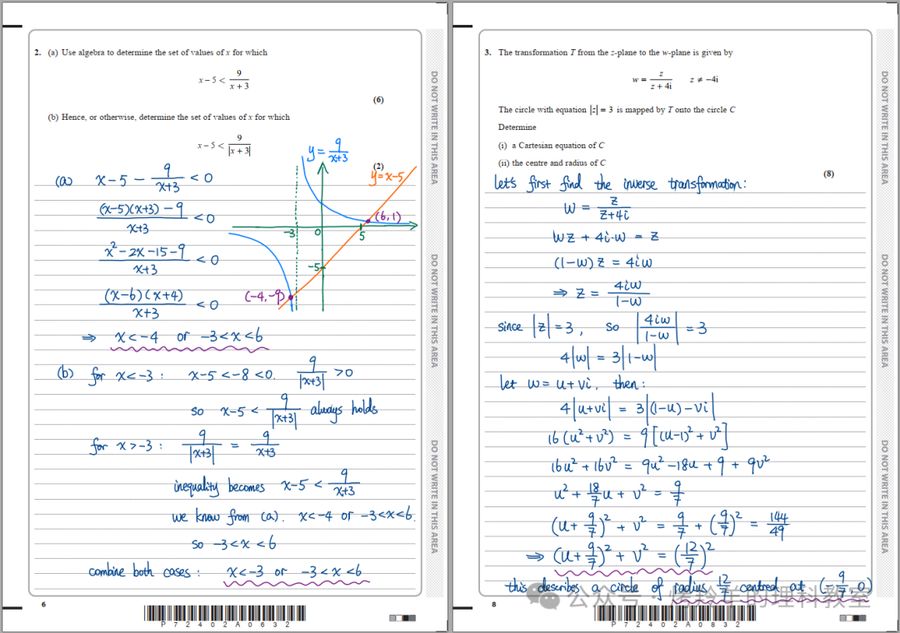 2. (a) Use algebra to determine the set of values of x for which
x − 5 < 9/(x + 3)
(6)
(b) Hence, or otherwise, determine the set of values of x for which
x − 5 < 9/|x + 3|
(2)
y = 9/(x+3)
y = x−5
(6, 1)
−3
0
5
−5
(−4, −9)
(a) x−5 − 9/(x+3) < 0
((x−5)(x+3) − 9)/(x+3) < 0
(x² − 2x − 15 − 9)/(x+3) < 0
((x−6)(x+4))/(x+3) < 0
⇒ x < −4 or −3 < x < 6
(b) for x < −3 : x−5 < −8 < 0. 9/|x+3| > 0
so x−5 < 9/|x+3| always holds
for x > −3 : 9/|x+3| = 9/(x+3)
inequality becomes x−5 < 9/(x+3)
we know from (a). x < −4 or −3 < x < 6.
so −3 < x < 6
combine both cases : x < −3 or −3 < x < 6
6
P 7 2 4 0 2 A 0 6 3 2
DO NOT WRITE IN THIS AREA
DO NOT WRITE IN THIS AREA
DO NOT WRITE IN THIS AREA
3. The transformation T from the z-plane to the w-plane is given by
w = z/(z + 4i) z ≠ −4i
The circle with equation |z| = 3 is mapped by T onto the circle C
Determine
(i) a Cartesian equation of C
(ii) the centre and radius of C
(8)
let's first find the inverse transformation:
w = z/(z+4i)
wz + 4i·w = z
(1−w) z = 4iw
⇒ z = 4iw/(1−w)
since |z| = 3, so |4iw/(1−w)| = 3
4|w| = 3|1−w|
let w = u+vi, then:
4|u+vi| = 3|(1−u) − vi|
16(u² + v²) = 9[(u−1)² + v²]
16u² + 16v² = 9u² − 18u + 9 + 9v²
u² + 18/7 u + v² = 9/7
(u + 9/7)² + v² = 9/7 + (9/7)² = 144/49
⇒ (u + 9/7)² + v² = (12/7)²
this describes a circle of radius 12/7 centred at (−9/7, 0)
8
P 7 2 4 0 2 A 0 8 3 2
DO NOT WRITE IN THIS AREA
DO NOT WRITE IN THIS AREA
DO NOT WRITE IN THIS AREA